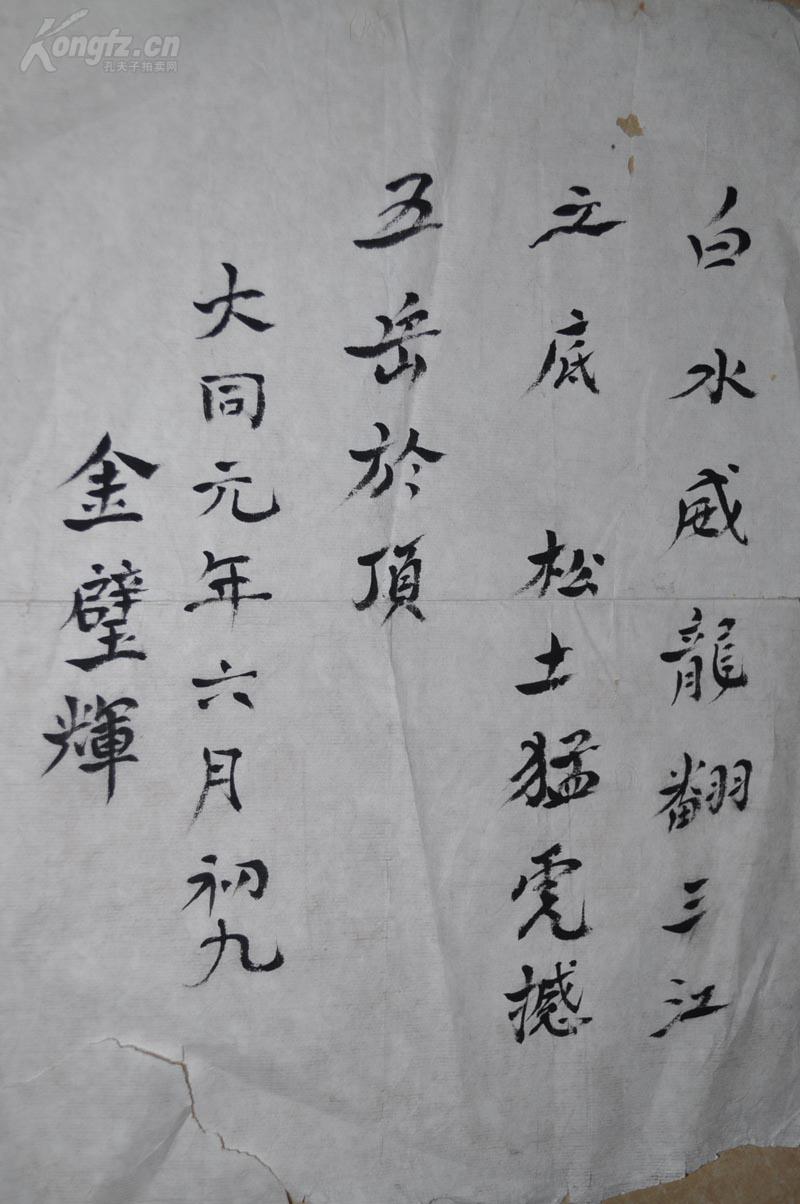 白水威龍翻三江
之底 松土猛虎撼
五岳於頂
大同元年六月初九
金璧輝
Kongfz.cn
孔夫子拍卖网